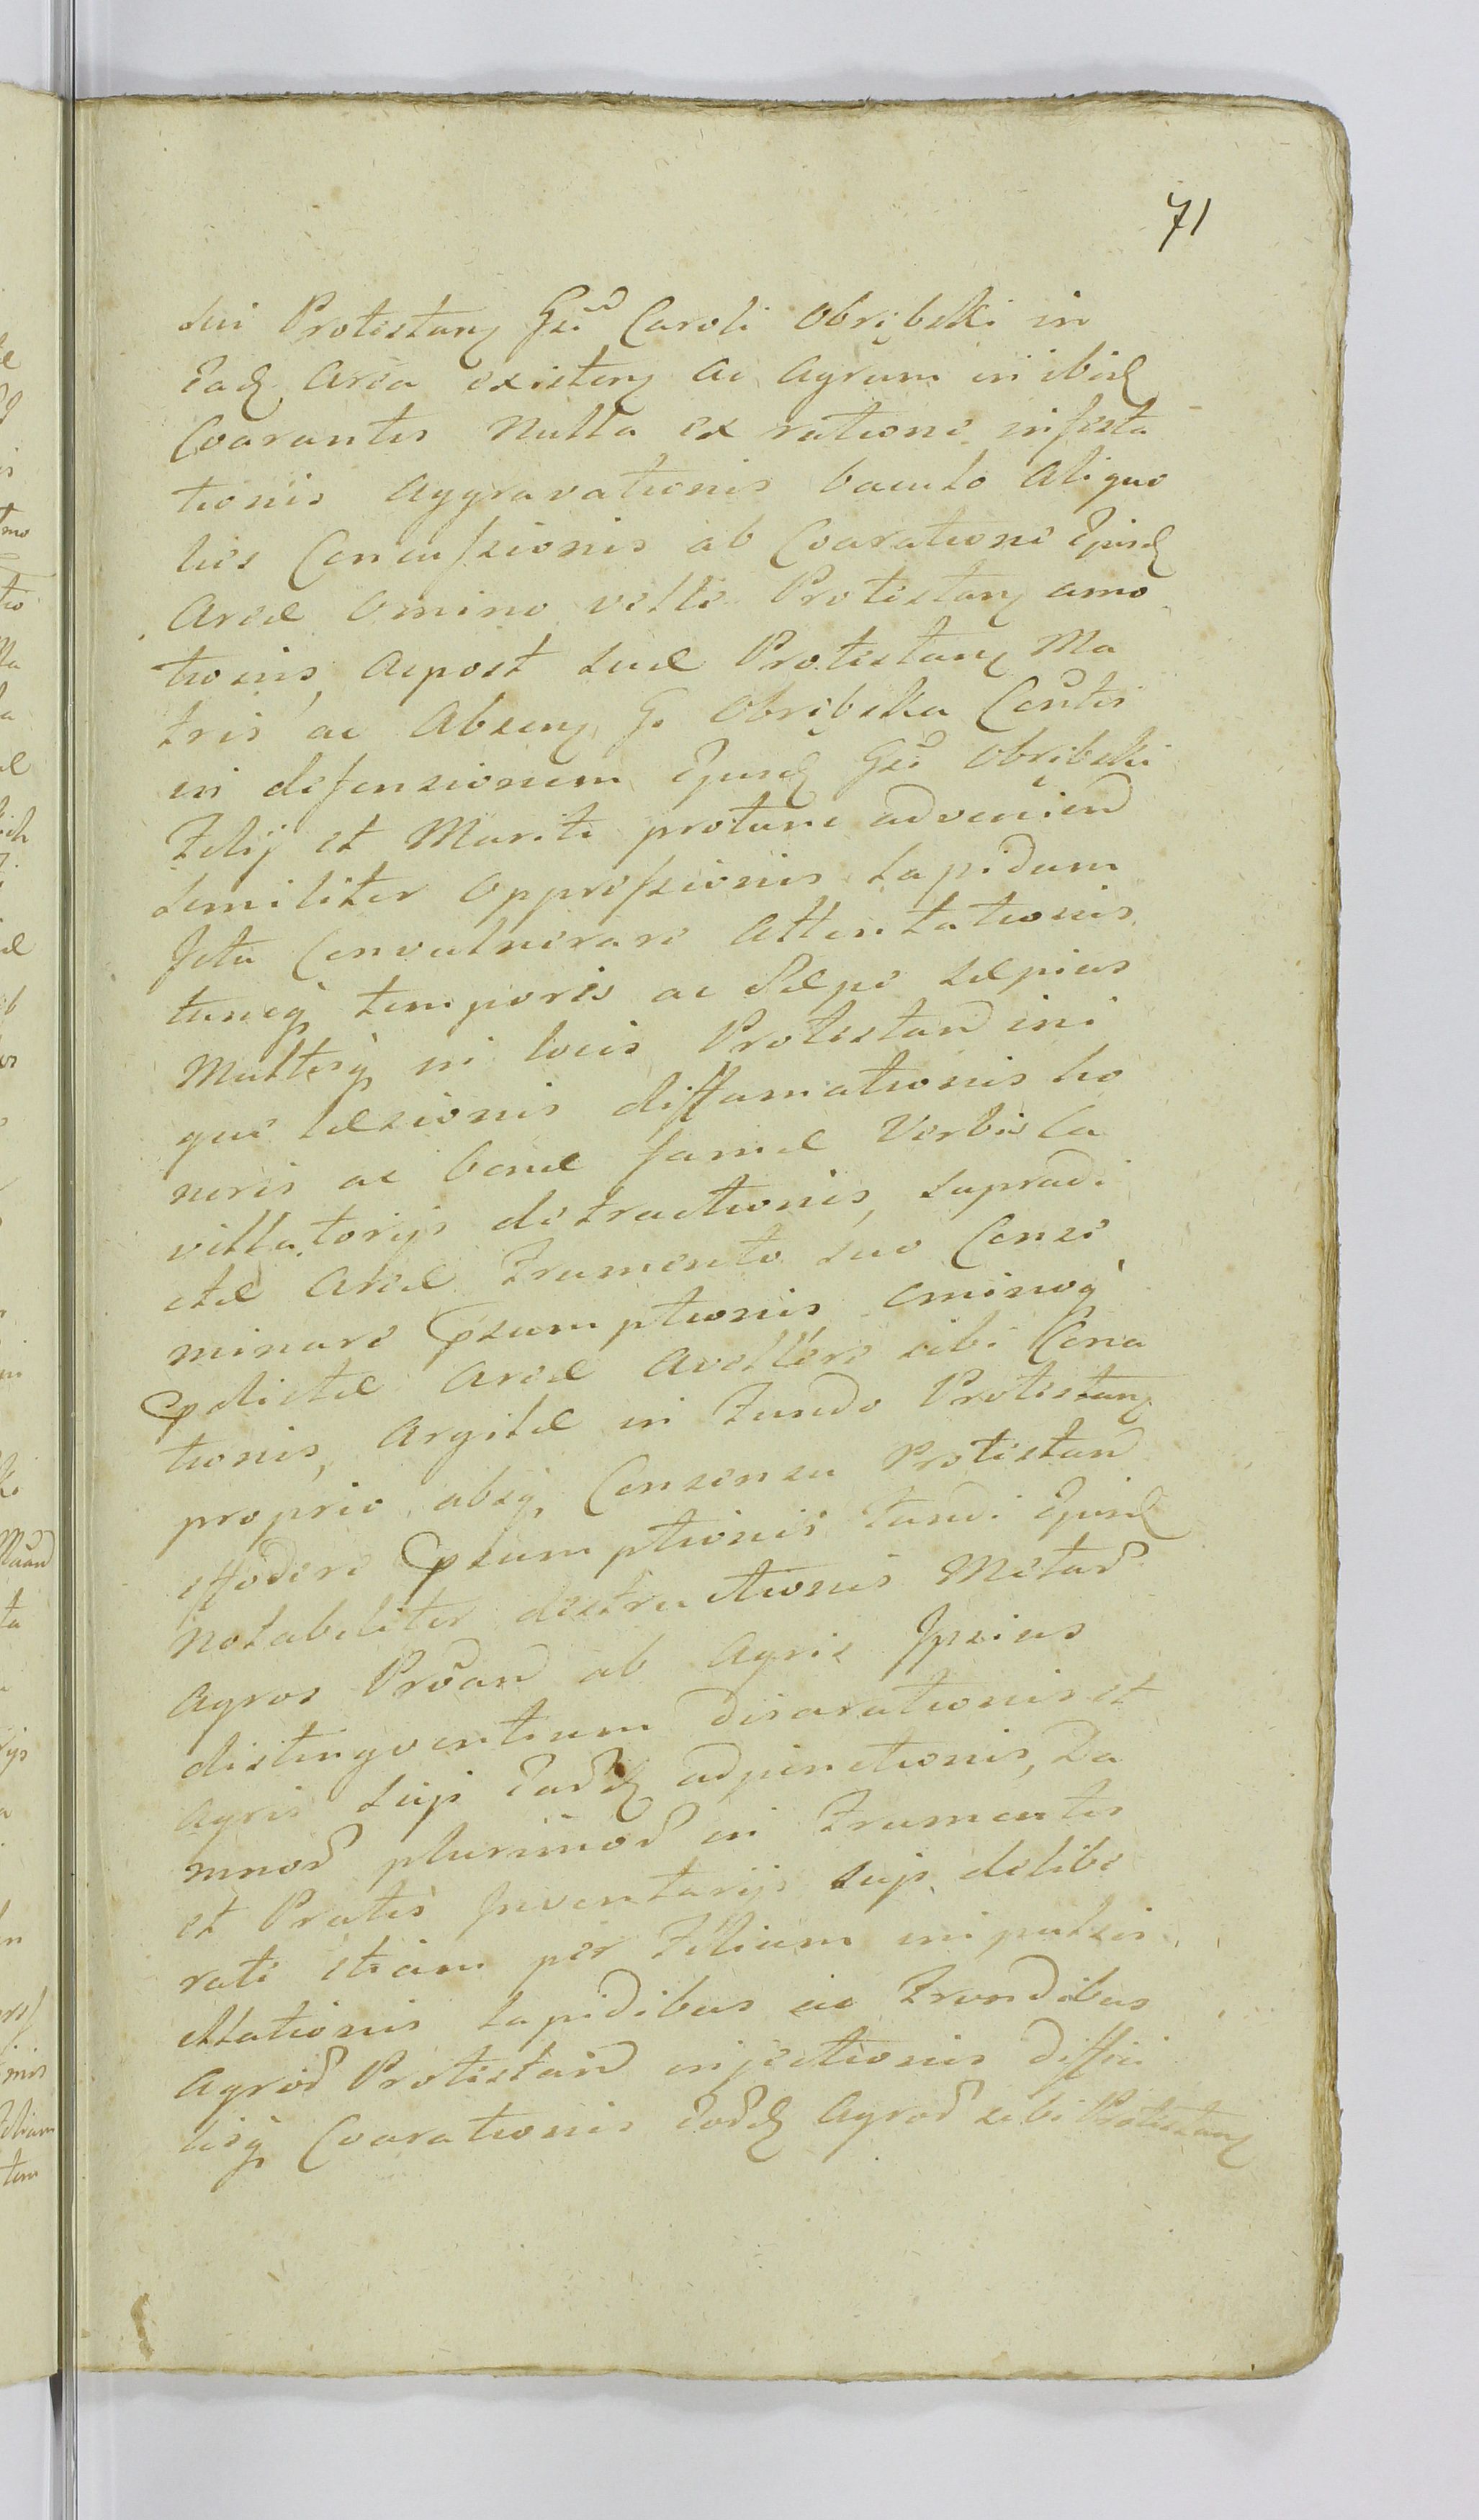 71
sui Protestanȝ Gsi Caroli Obrębski in
Eadȝ Area existenȝ ac Agrum in ibidȝ
Coarantis Nulla ex ratione infesta
tionis Aggravationis baculo Aliquo
ties Concussionis ab Coaratione Ejusdȝ
Areæ Omino velle Protestanȝ amo
tionis, Acpost suæ Protestanȝ Ma
tris ac Absenȝ G. Obrębska Contis
in defensionem Ejusdȝ Gsi Obrębski
Filij et Mariti protunc advenien
Similiter Oppressionis Lapidum
Jctu Convulnerare Attentationis
tuncq temporis ac Sæpe sæpius
Multisq in locis Protestan ini
que læsionis diffamationis ho
noris ac bonæ famæ Verbis Ca
villatorijs detractionis, supradi
ctæ Areæ Frumento suo Conse
minare Psumptionis ominoq
Pdictæ Areæ Avellere sibi Cona
tionis, Argilæ in Fundo Protestanȝ
proprio absq Consensu Protestan
effodere Psumptionis Fundi Ejusdȝ
Notabiliter destructionis Metar
Agros Proan ab Agris Ipsius
distingventium disarationis et
Agris suis Eardȝ adjunctionis, Da
mnor plurimor in Frumentis
et Pratis Inventarijs suis delibe
rate etiam per Filium impulsis
illationis Lapidibus ac Frondibus
Agror Protestan injectionis diffici
lisq Coarationis Eordȝ Agror sibi Protestanȝ